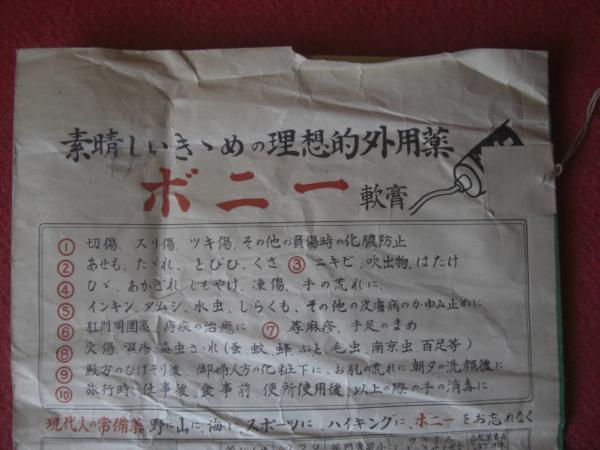 素晴しいきゝめの理想的外用薬
ボニー 軟膏
① 切傷、スリ傷、ツキ傷、その他の負傷時の化膿防止
② あせも、たゞれ、とびひ、くさ ③ ニキビ、吹出物、はたけ
④ ひゞ、あかぎれ、しもやけ、凍傷、手の荒れに、
⑤ インキン、タムシ、水虫、しらくも、その他の皮膚病のかゆみ止めに
⑥ 肛門周囲炎、痔疾の治癒に ⑦ 蕁麻疹、手足のまめ
⑧ 火傷、湿疹、毒虫さされ(蚤、蚊、蜂、ぶと、毛虫、南京虫、百足等)
⑨ 殿方のひげそり後、御婦人方の化粧下に、お肌の荒れに朝夕の洗顔後に
⑩ 旅行時、仕事後、食事前、便所使用後、以上の際の手の消毒に
現代人の常備薬 野に山に、海に、スポーツに、ハイキングに、ボニーをお忘れなく